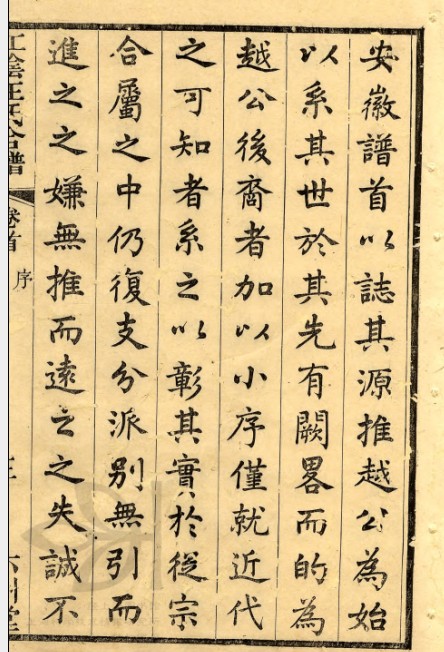 安徽譜首以誌其源推越公為始
以系其世於其先有闕畧而的為
越公後裔者加以小序僅就近代
之可知者系之以彰其實於從宗
合屬之中仍復支分派別無引而
進之之嫌無推而遠之之失誠不
江陰汪氏合譜
卷首
序